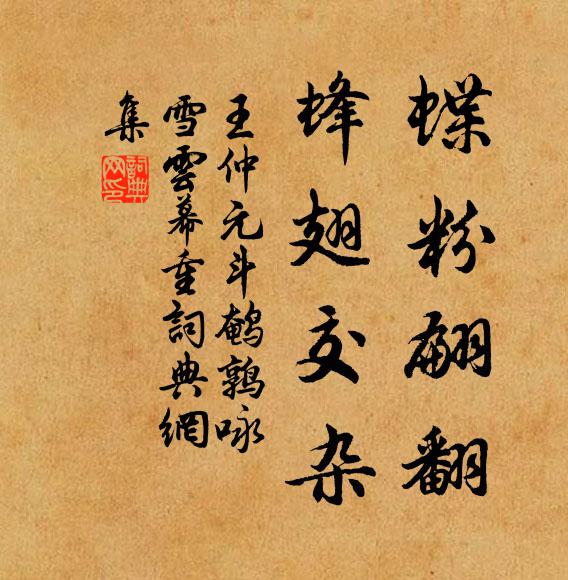 蝶粉翩翻
蜂翅交杂
王仲元斗鹌鹑咏
雪雲幕重詞典網
集
詞典网印